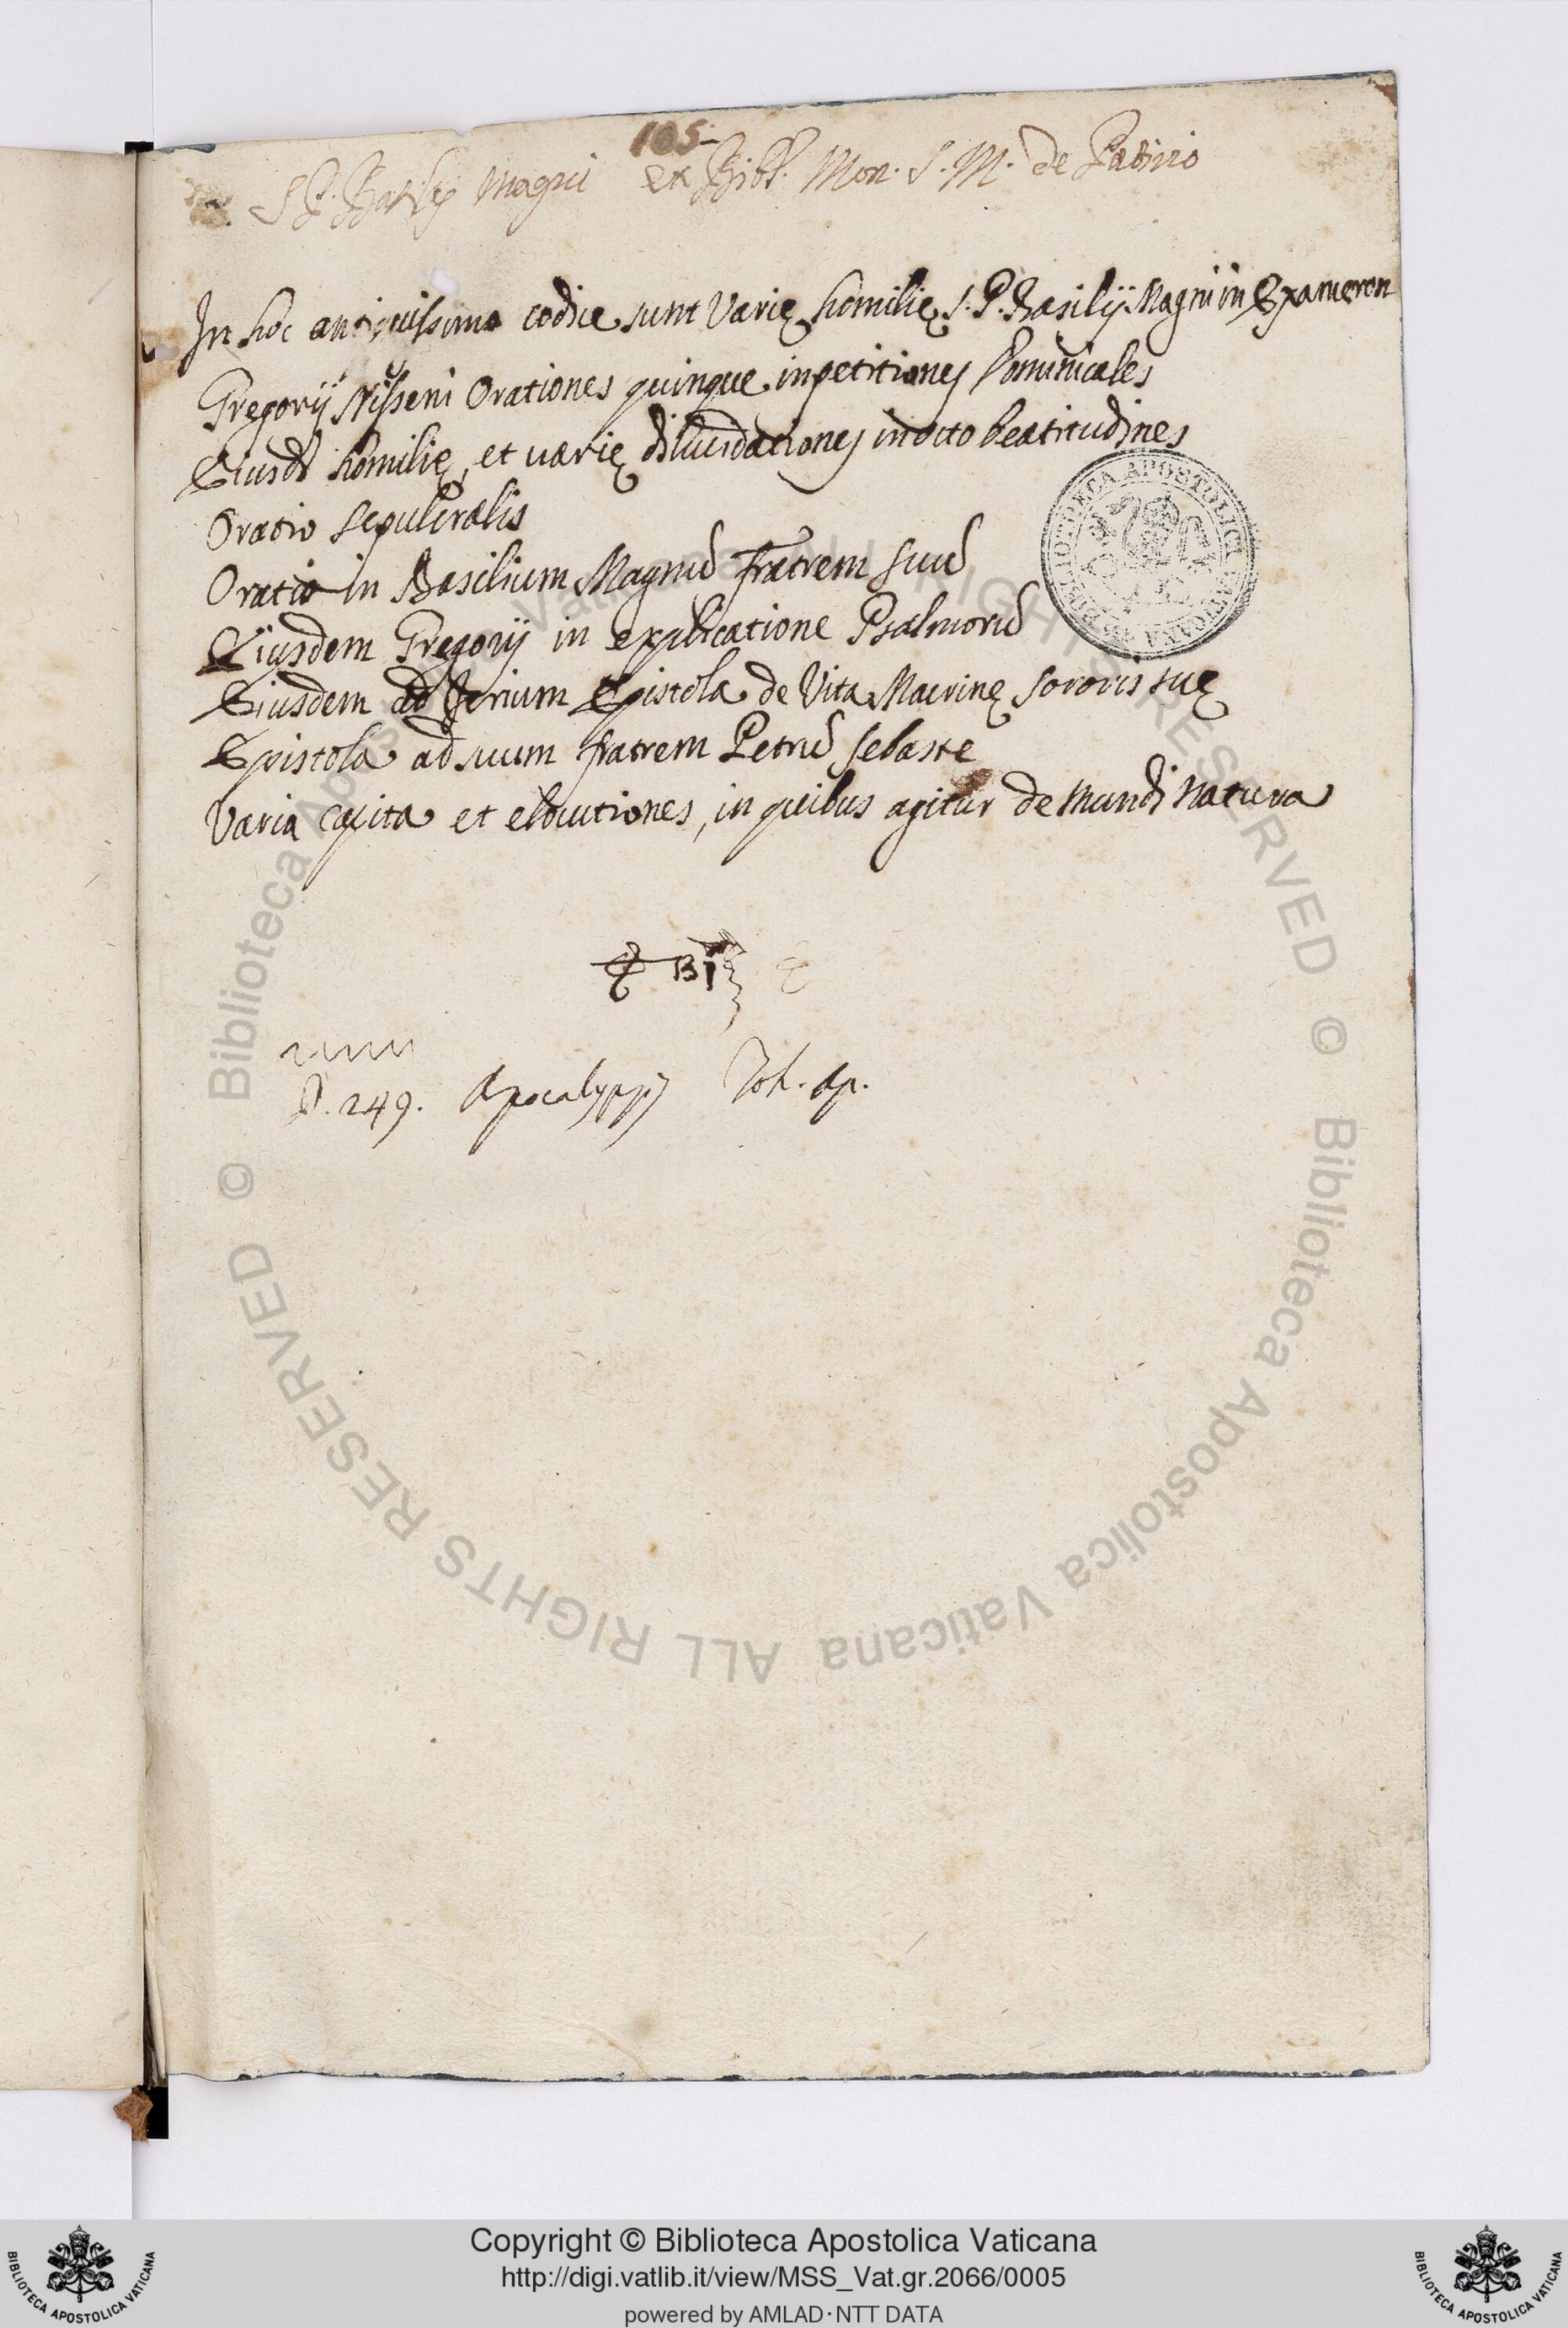 105
S P. Basilij Magni ex Bibl. Mon. S. M. de Patirio
In hoc antiquissimo codice sunt varię homilię S. P. Basilij Magni in Exameron
Gregorij Nisseni Orationes quinque in petitiones Dominicales
Eiusdē homilię, et varię dilucidationes in octo beatitudines
Oratio sepulcralis
Oratio in Basilium Magnū fratrem suū
Eiusdem Gregorij in explicatione Psalmorū
Eiusdem ad Ierium Epistola de Vita Macrinę sororis suę
Epistola ad suum fratrem Petrū sebaste
Varia capita et elocutiones, in quibus agitur de mundi natura
P. 249. Apocalypsis Joh. Ap.
BIBLIOTECA APOSTOLICA VATICANA
© Biblioteca Apostolica Vaticana ALL RIGHTS RESERVED © Biblioteca Apostolica Vaticana ALL RIGHTS RESERVED
Copyright © Biblioteca Apostolica Vaticana
http://digi.vatlib.it/view/MSS_Vat.gr.2066/0005
powered by AMLAD·NTT DATA
BIBLIOTECA APOSTOLICA VATICANA
BIBLIOTECA APOSTOLICA VATICANA